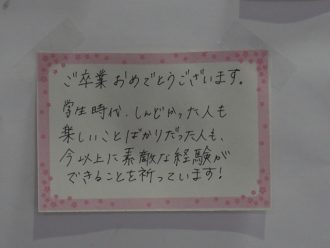 ご卒業おめでとうございます。
学生時代、しんどかった人も
楽しいことばかりだった人も、
今以上に素敵な経験が
できることを祈っています!